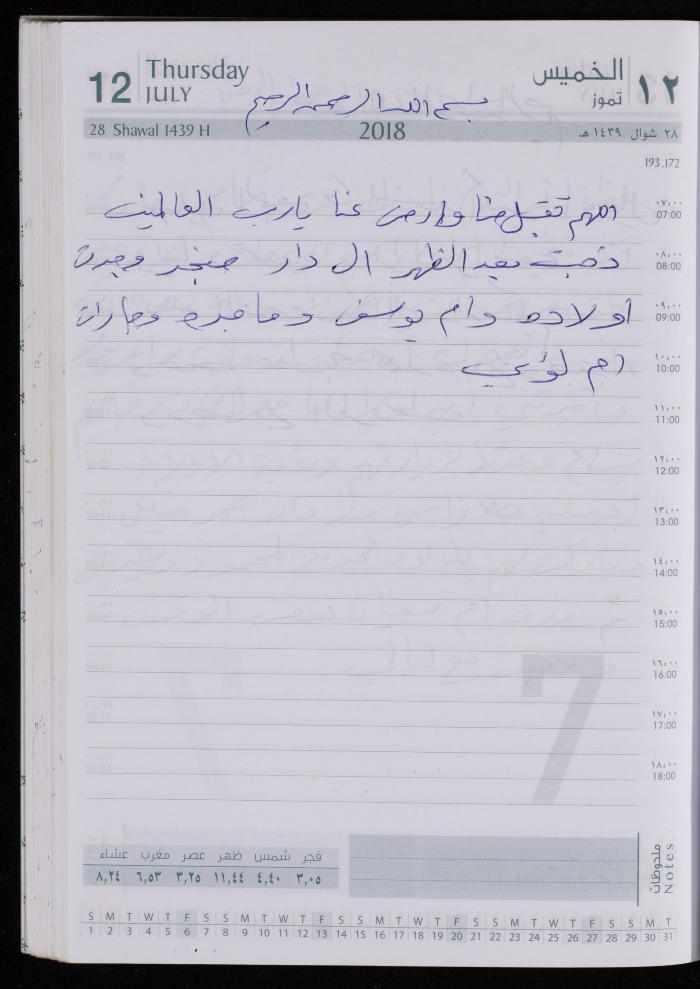 12 Thursday JULY
الخميس ١٢ تموز
بسم الله الرحمن الرحيم
28 Shawal 1439 H 2018 ٢٨ شوال ١٤٣٩ هـ
193.172
اللهم تقبل منا وارض عنا يارب العالمين
٠٧:٠٠ 07:00
ذهبت بعد الظهر ال دار وجدت
٠٨:٠٠ 08:00
اولاده وام يوسف وماجده وجارات
٠٩:٠٠ 09:00
ام لؤي
١٠:٠٠ 10:00
١١:٠٠ 11:00
١٢:٠٠ 12:00
١٣:٠٠ 13:00
١٤:٠٠ 14:00
١٥:٠٠ 15:00
١٦:٠٠ 16:00
١٧:٠٠ 17:00
١٨:٠٠ 18:00
7
فجر شمس ظهر عصر مغرب عشاء
٣,٠٥ ٤,٤٠ ١١,٤٤ ٣,٢٥ ٦,٥٣ ٨,٢٤
ملحوظات
Notes
S M T W T F S S M T W T F S S M T W T F S S M T W T F S S M T
1 2 3 4 5 6 7 8 9 10 11 12 13 14 15 16 17 18 19 20 21 22 23 24 25 26 27 28 29 30 31